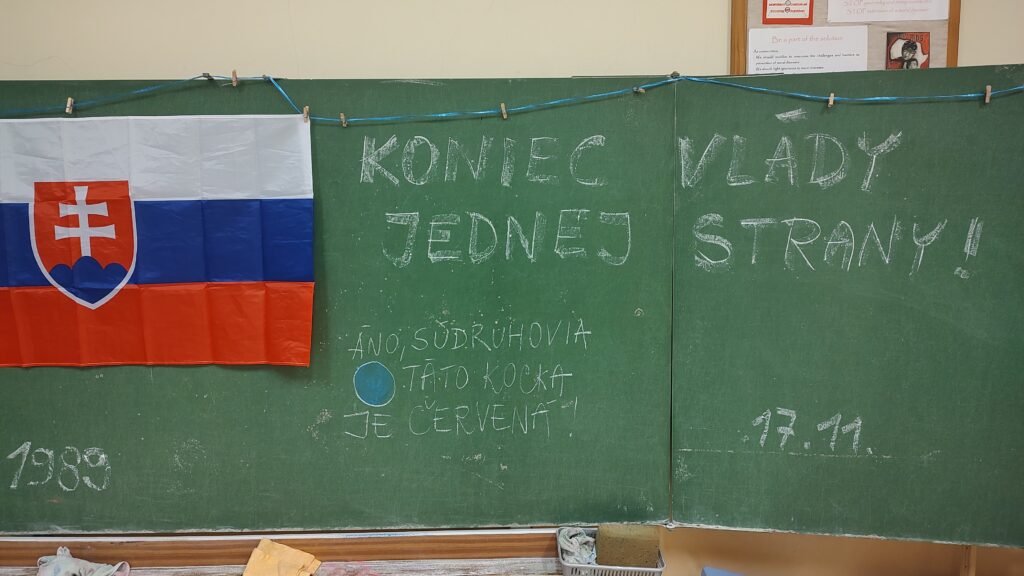 Be a part of the solution
KONIEC VLÁDY
JEDNEJ STRANY!
ÁNO, SÚDRUHOVIA
TÁTO KOCKA
JE ČERVENÁ!
1989
17.11.